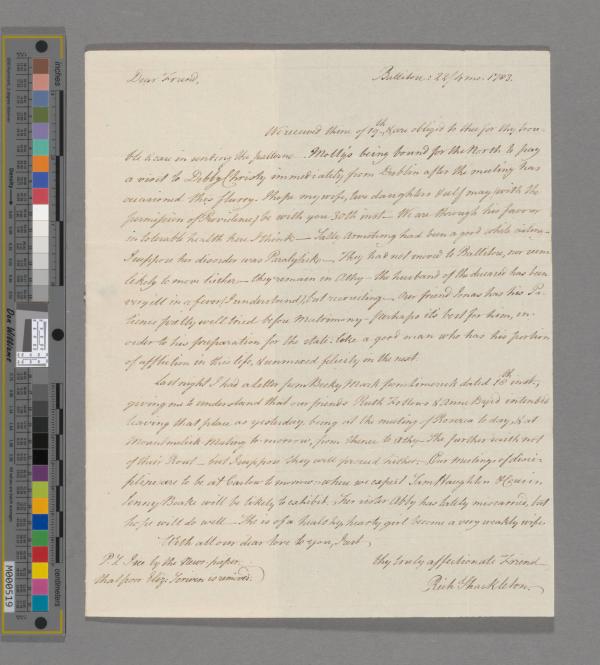 Dear Friend,
Ballitore: 22/4mo. 1783.
We received thine of 19th, & are oblig'd to thee for thy trou-
ble & care in sending the patterns. Molly's being bound for the North to pay
a visit to Debby Christy immediately from Dublin after the meeting has
occasioned this flurry. I hope my wife, two daughters & self may (with the
permission of Providence) be with you 30th inst.— We are through his favour
in tolerable health here I think.— Sally Armstrong had been a good while ailing
I suppose her disorder was Paralytick.— They had not moved to Ballitore, nor seem
likely to move hither.— they remain in Athy — the husband of the deceased has been
very ill in a fever, (I understand), but recruiting.— Our friend Jonas has his Pa-
tience pretty well tried before Matrimony — perhaps its best for him, in
order to his preparation for the state: like a good man who has his portion
of affliction in this life, & unmixed felicity in the next.
Last night I had a letter from Becky Mark from Limerick dated 18th inst.,
giving me to understand that our friends Ruth Follows & Anne Byrd intended
leaving that place as yesterday, being at the meeting of Roscrea to day, & at
Mountmelick Meeting to-morrow, from thence to Athy — She further saith not
of their Rout — but I suppose they will proceed hither.— Our meetings of disci-
pline are to be at Carlow to-morrow — where we expect Sam Haughton & Cousin
Jenny Beake will be likely to exhibit. Her sister Abby has lately miscarried, but
hope will do well — She is of a healthy, hearty girl become a very weakly wife
With all our dear love to you, I rest,
thy truly affectionate Friend
Rich Shackleton.
P.S. I see by the News-paper,
that poor Eliz: is removed.
inches
centimeters
Density
Don Williams
M000519